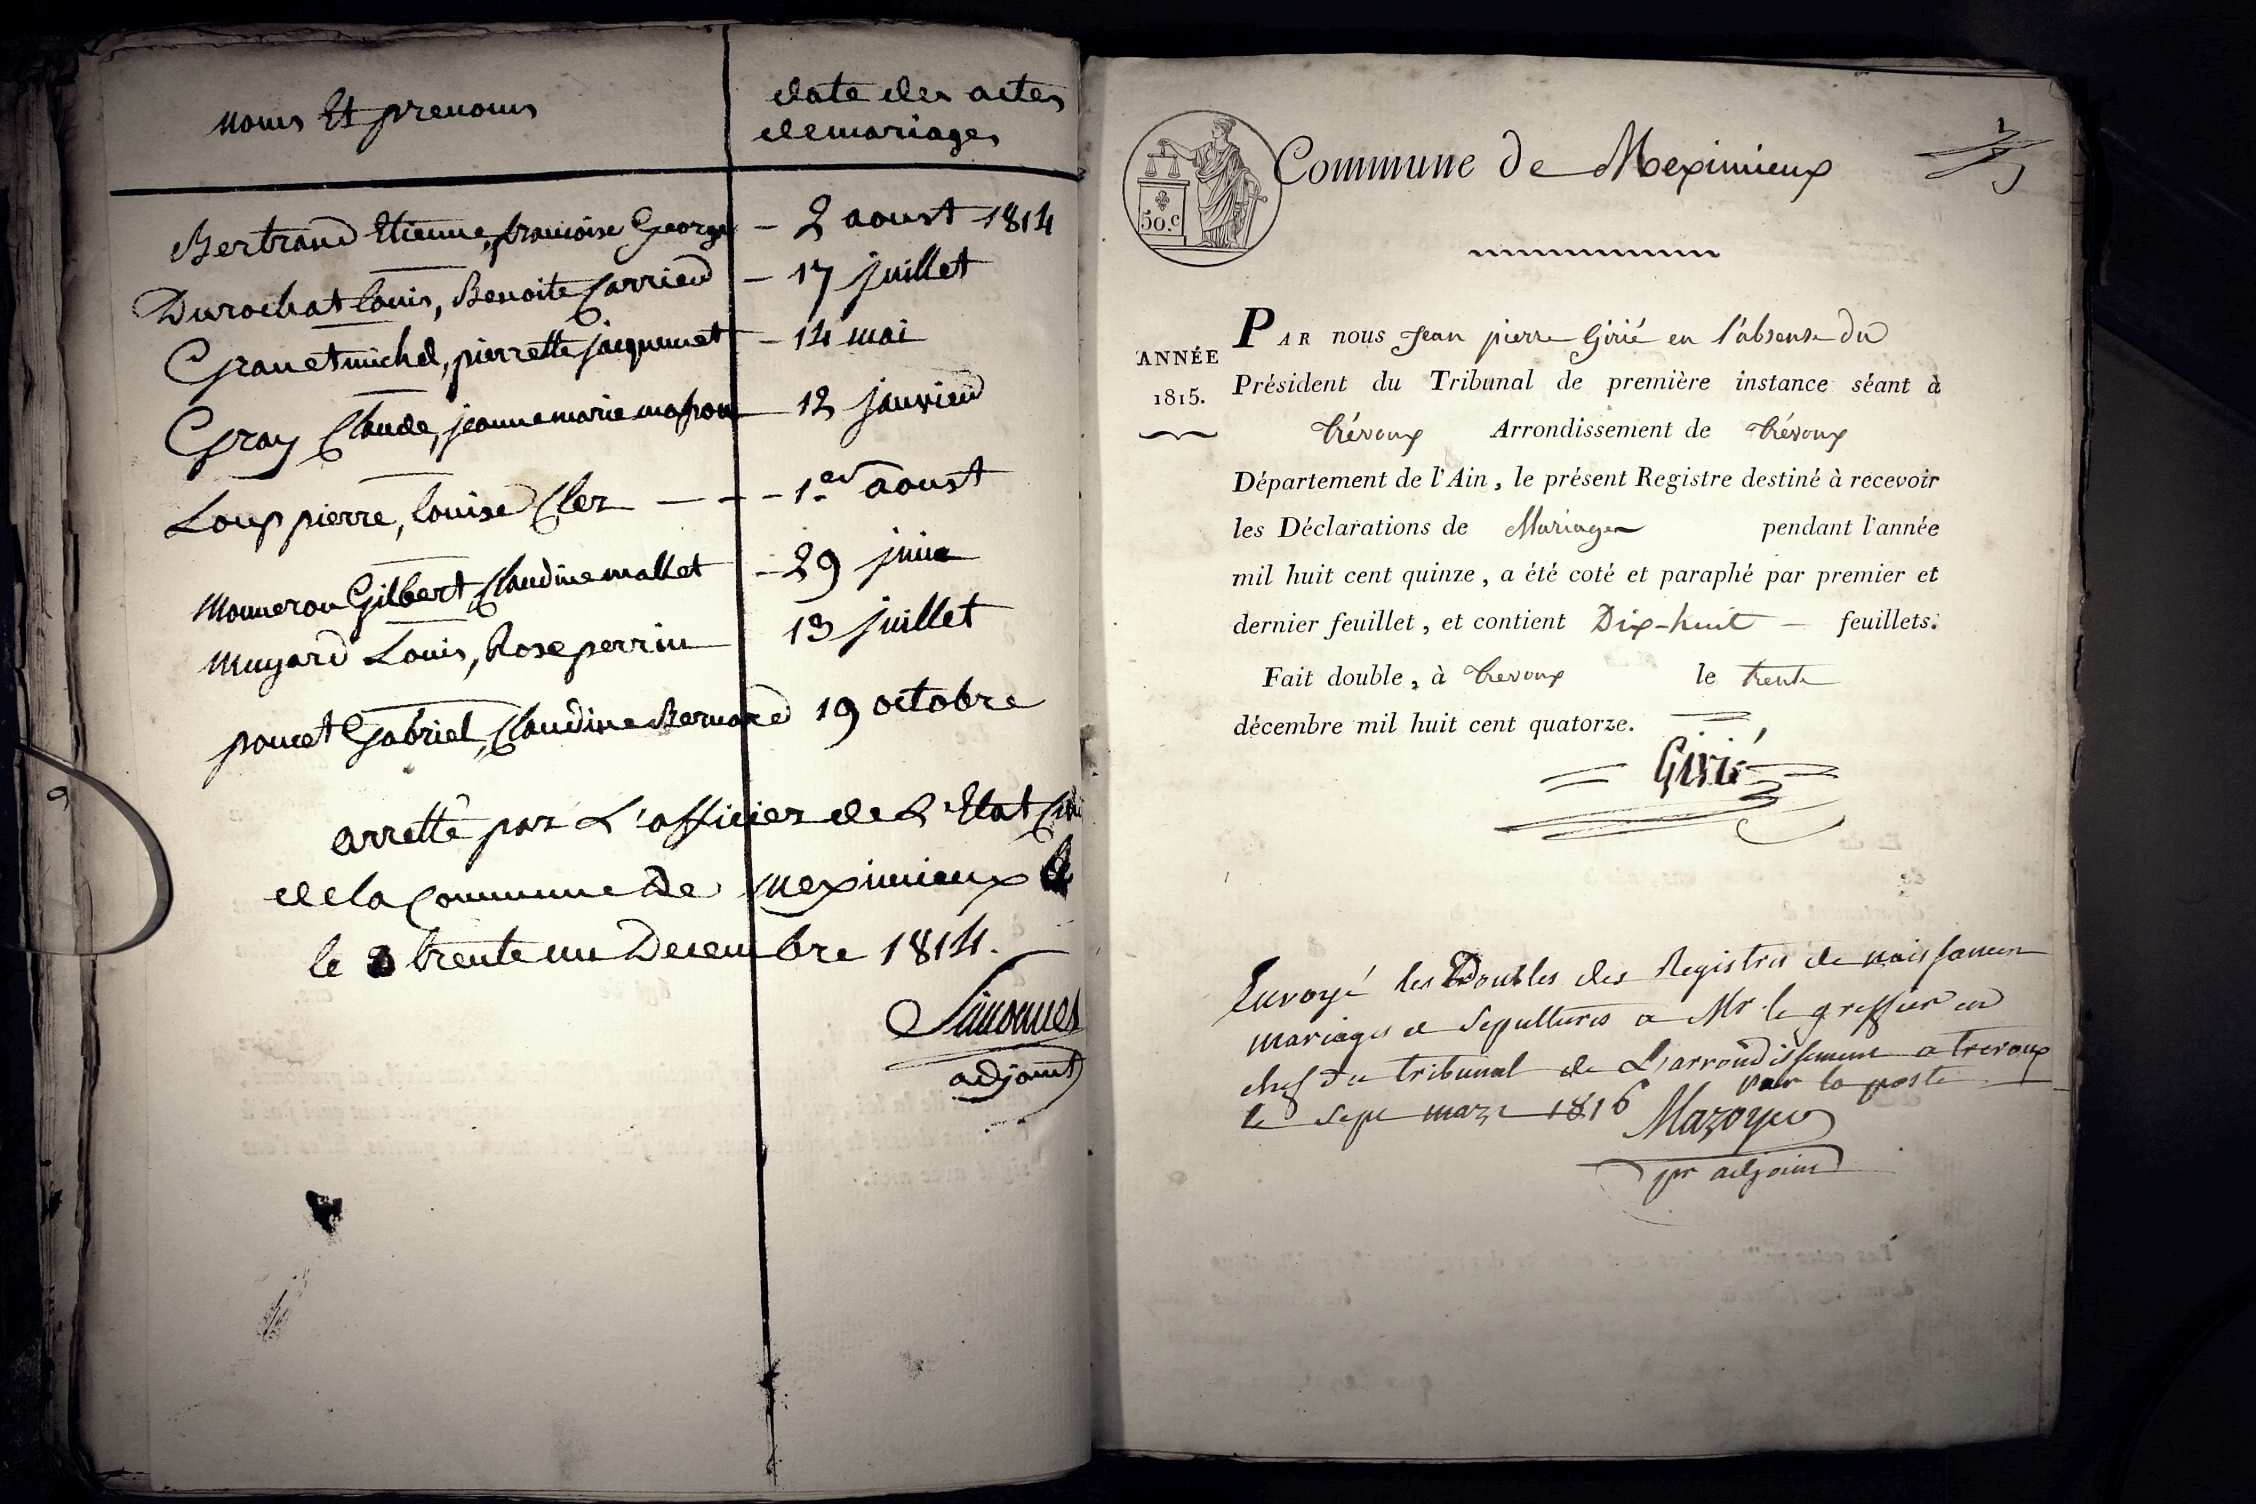 noms Et prenoms
date des actes
de mariages
Bertrand Etienne, francoise George - 2 aoust 1814
Durochat louis, Benoite Carrier - 17 juillet
Granet michel, pierrette jacquemet - 14 mai
Gray Claude, jeanne marie masson 12 janvier
Loup pierre, louise Clez - - - 1.er aoust
Monneron Gilbert, Claudine mallet - 29 juin
Mugard Louis, Rose perrin 13 juillet
poncet Gabriel, Claudine Bernard 19 octobre
arretté par L'officier de L'Etat Civil
de la Commune de meximieux
le trente un Decembre 1814.
Simonnet
adjoint
Commune de Meximieux
50.c
ANNÉE
1815.
PAR nous Jean pierre Girié en l'absense du
Président du Tribunal de première instance séant à
trévoux Arrondissement de trévoux
Département de l'Ain, le présent Registre destiné à recevoir
les Déclarations de Mariages pendant l'année
mil huit cent quinze, a été coté et paraphé par premier et
dernier feuillet, et contient Dix-huit - feuillets.
Fait double, à trevoux le trente
décembre mil huit cent quatorze.
Girié
Envoyé les Doubles des Registres de naissances
mariages et sepultures a Mr le greffier en
chef du tribunal de L'arrondissement a trevoux
par la poste
le sept mars 1816
Mazoyer
pr adjoint